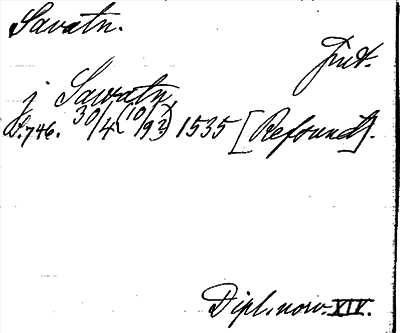 Savatn.
Jnt.
j Sawatn
S. 746. 30/4 (10/192) 1535 [Refsund].
Dipl. norv. XIV.